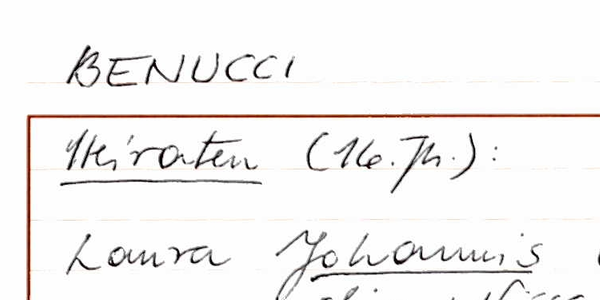 BENUCCI
Heiraten (16. Jh.):
Laura Johannis